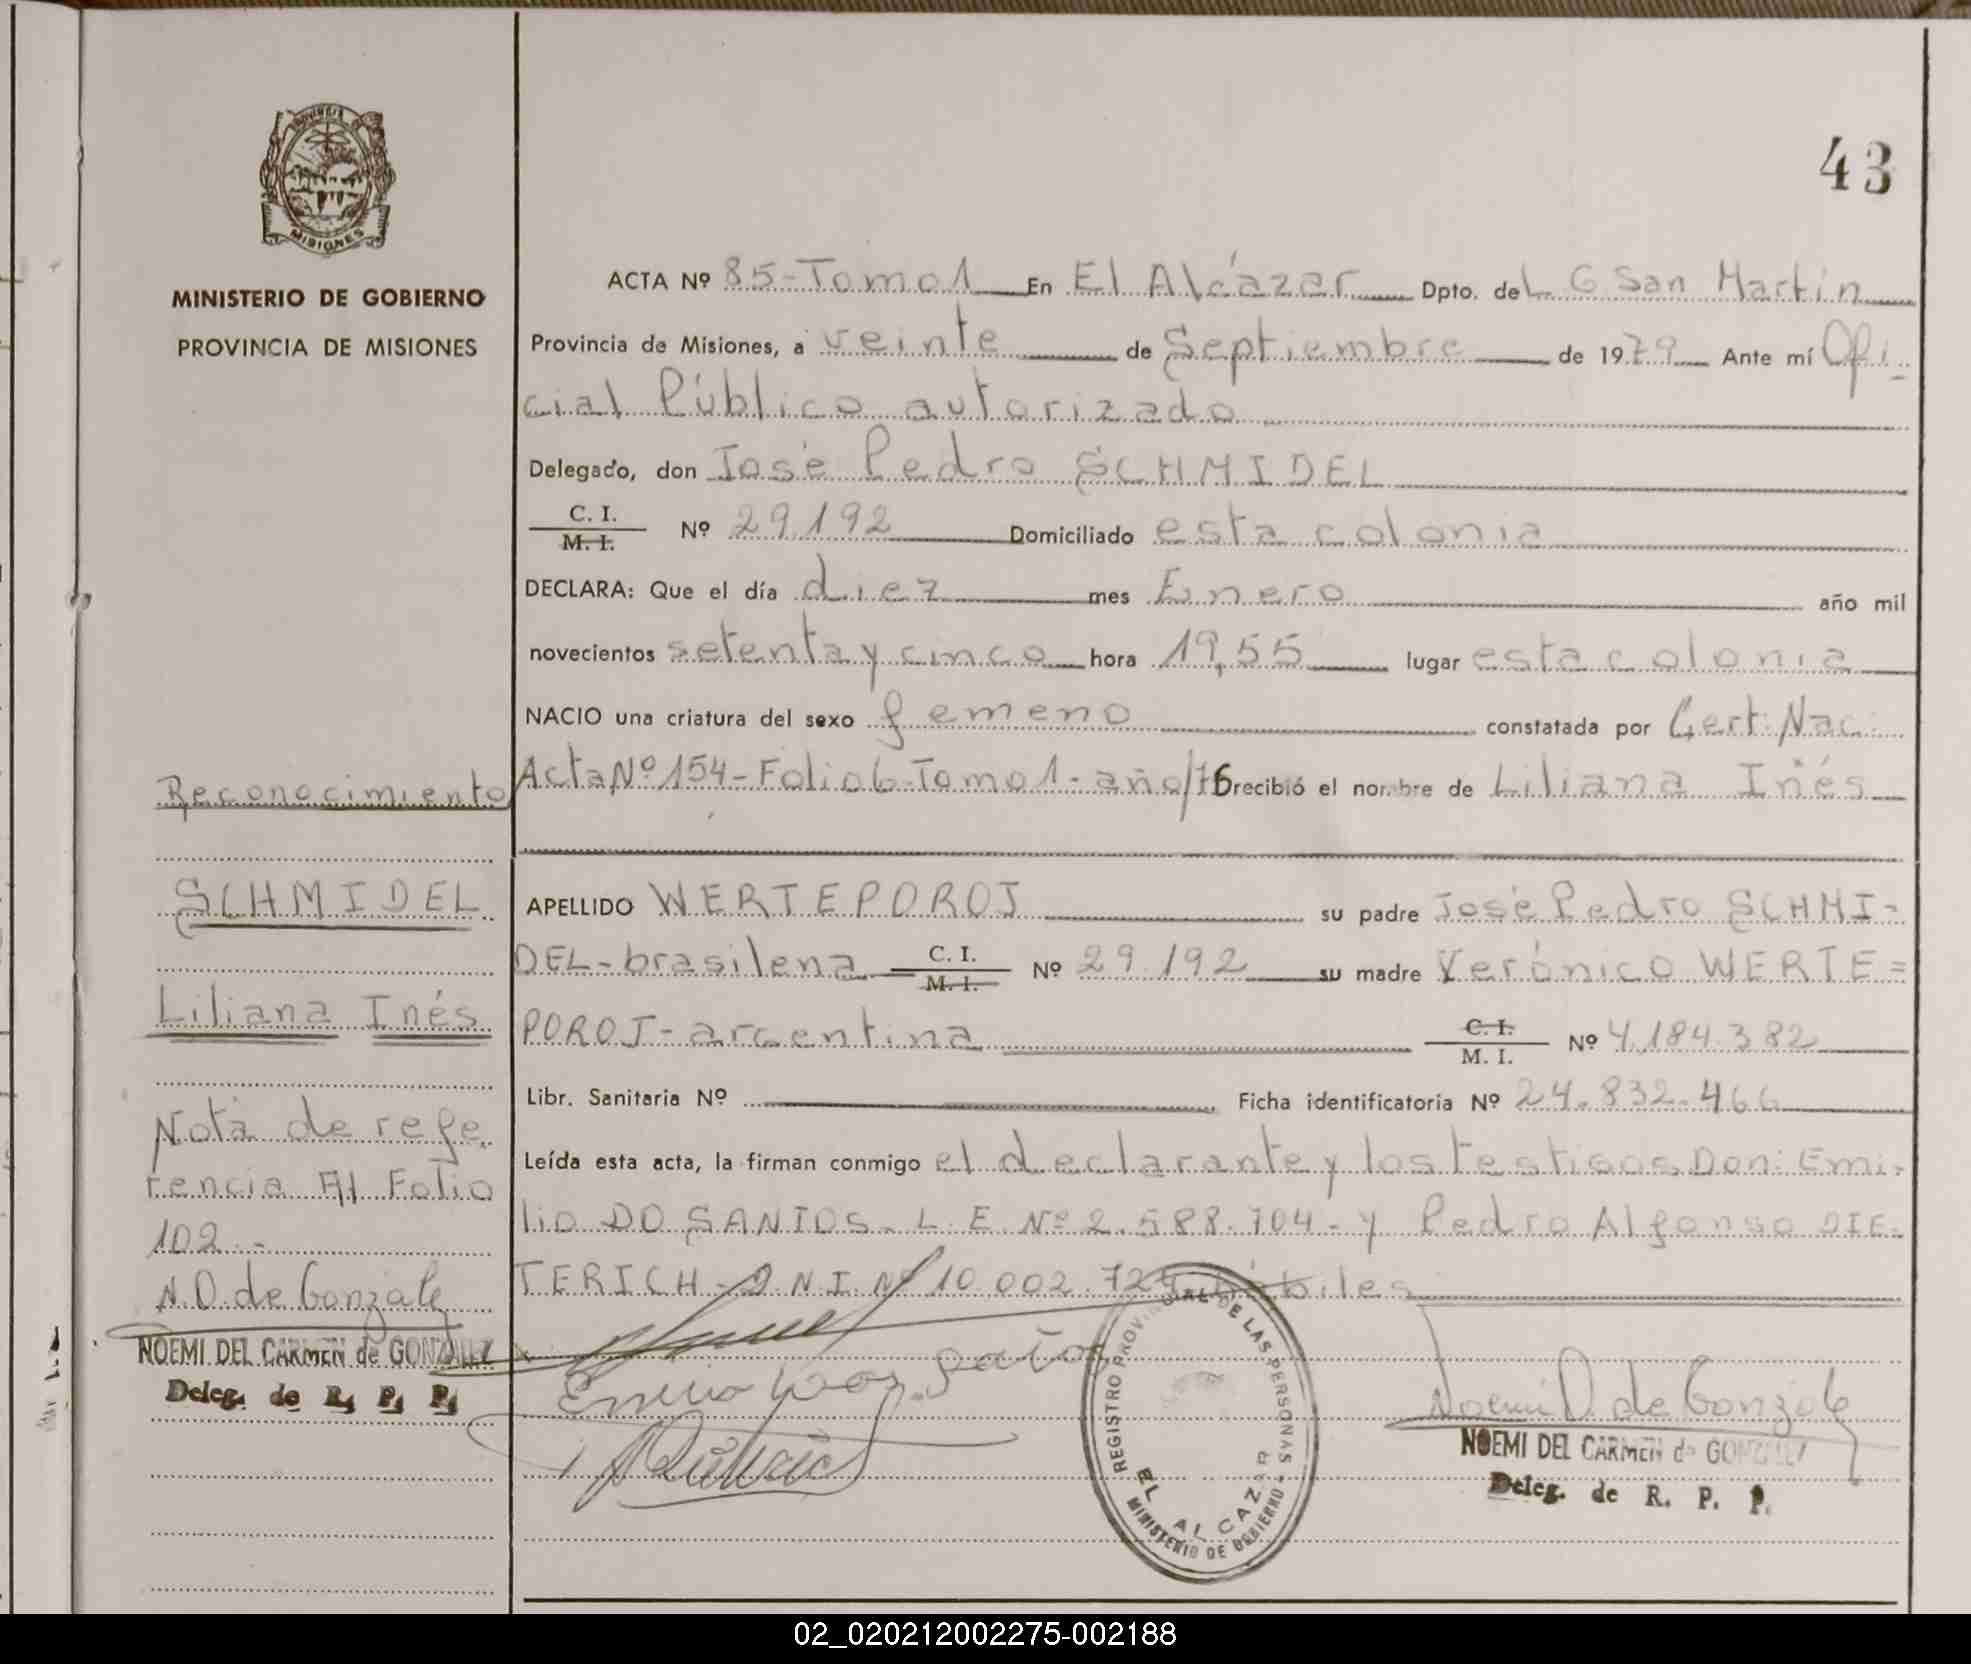 PROVINCIA DE
MISIONES
MINISTERIO DE GOBIERNO
PROVINCIA DE MISIONES
43
ACTA Nº 85-Tomo 1 En El Alcázar Dpto. de L G San Martín
Provincia de Misiones, a veinte de Septiembre de 1979 Ante mí Ofi-
cial Público autorizado
Delegado, don José Pedro SCHMIDEL
C. I.
M. I. Nº 29.192 Domiciliado esta colonia
DECLARA: Que el día diez mes Enero año mil
novecientos setenta y cinco hora 19,55 lugar esta colonia
NACIO una criatura del sexo femeno constatada por Cert. Nac.
Acta Nº 154-Folio 6-Tomo 1-año/76 recibió el nombre de Liliana Inés
APELLIDO WERTEPOROJ su padre José Pedro SCHMI-
DEL-brasilena C. I.
M. I. Nº 29.192 su madre Verónico WERTE=
POROJ-argentina C. I.
M. I. Nº 4.184.382
Libr. Sanitaria Nº Ficha identificatoria Nº 24.832.466
Leída esta acta, la firman conmigo el declarante y los testigos Don: Emi-
lio DO SANTOS- L. E. Nº 2.588.704- y Pedro Alfonso DIE-
TERICH- D.N.I. Nº 10.002.724 hábiles
Reconocimiento
SCHMIDEL
Liliana Inés
Nota de refe
rencia Al Folio
102.-
N.D. de Gonzale
NOEMI DEL CARMEN de GONZALEZ
Deleg. de R. P. P.
REGISTRO PROVINCIAL DE LAS PERSONAS
EL ALCAZAR
MINISTERIO DE GOBIERNO
Noemi D de Gonzale
NOEMI DEL CARMEN de GONZALEZ
Deleg. de R. P. P.
02_020212002275-002188